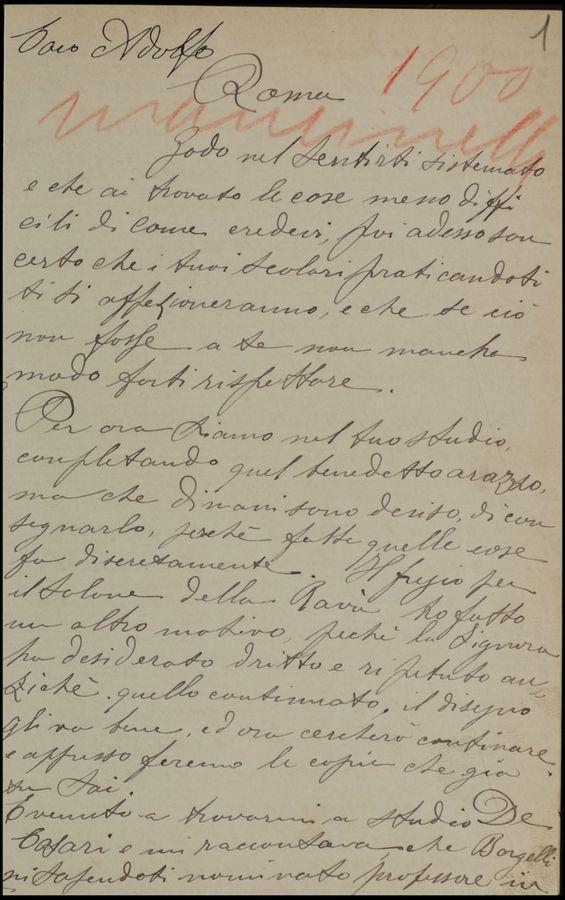 1
Caro Adolfo
1900
Roma
Mancinelli
Godo nel sentirti sistemato
e che ai trovato le cose meno diffi
cili di come credevi, poi adesso son
certo che i tuoi scolari praticandoti
ti si affezioneranno, e che se ciò
non fosse a te non mancha
modo farti rispettare.
Per ora siamo nel tuo studio,
conpletando quel benedetto arazzo,
ma che dimani sono deciso, di con
segnarlo, perchè fatte quelle cose
fa discretamente. Il fregio per
il salone della Ravà ho fatto
un altro motivo, pechè la Signora
ha desiderato dritto e ripetuto an
zichè quello continuato, il disegno
gli va bene, ed ora cercherò continuare
e appresso faremo le copie che già
tu sai.
È venuto a trovarmi a studio De
Casari e mi raccontava che Borgelli
ni sapendoti nominato professore in